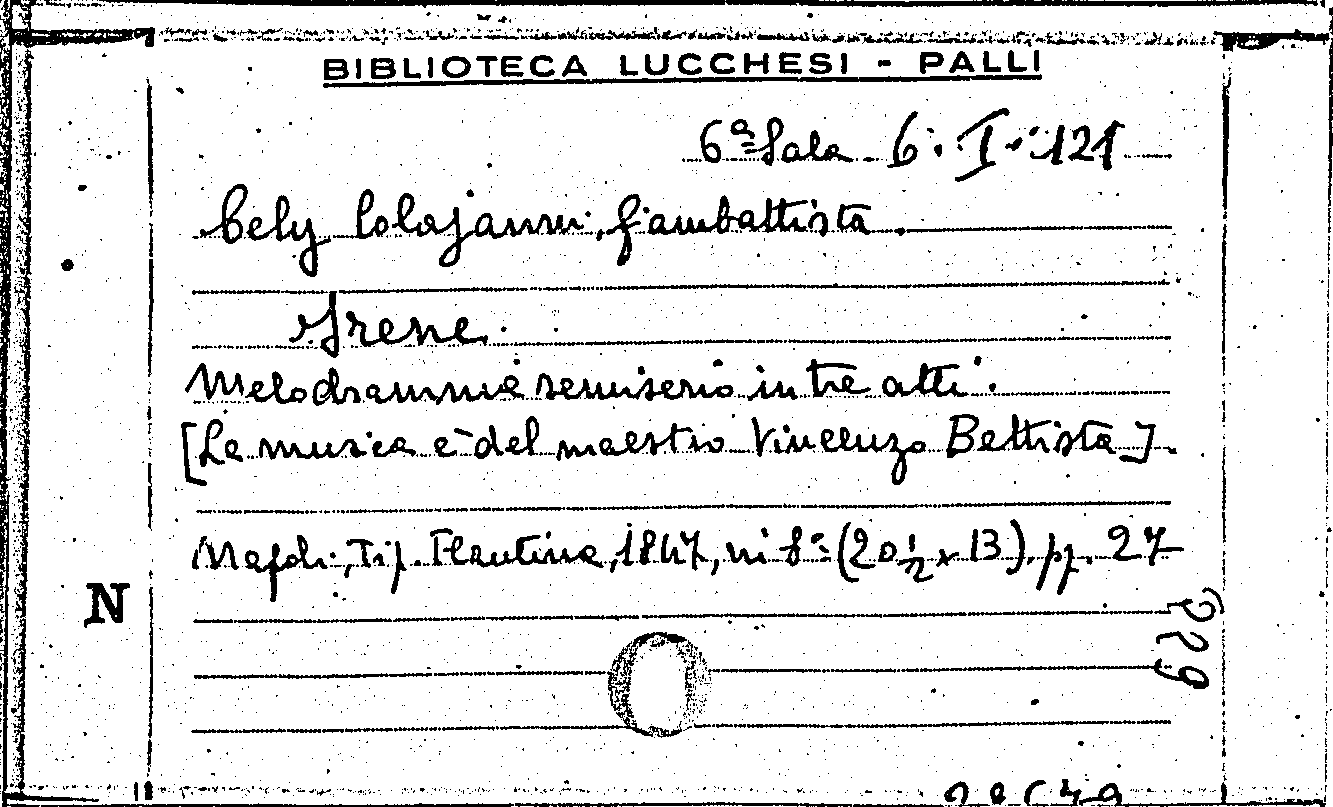 BIBLIOTECA LUCCHESI - PALLI
6ª Sala 6. I. 121
Cely Colajanni, Giambattista.
Irene.
Melodramma semiserio in tre atti.
[La musica è del maestro Vincenzo Battista].
Napoli, Tip. Flautina, 1847, in 8° (20½ x 13). pp. 27
N
229